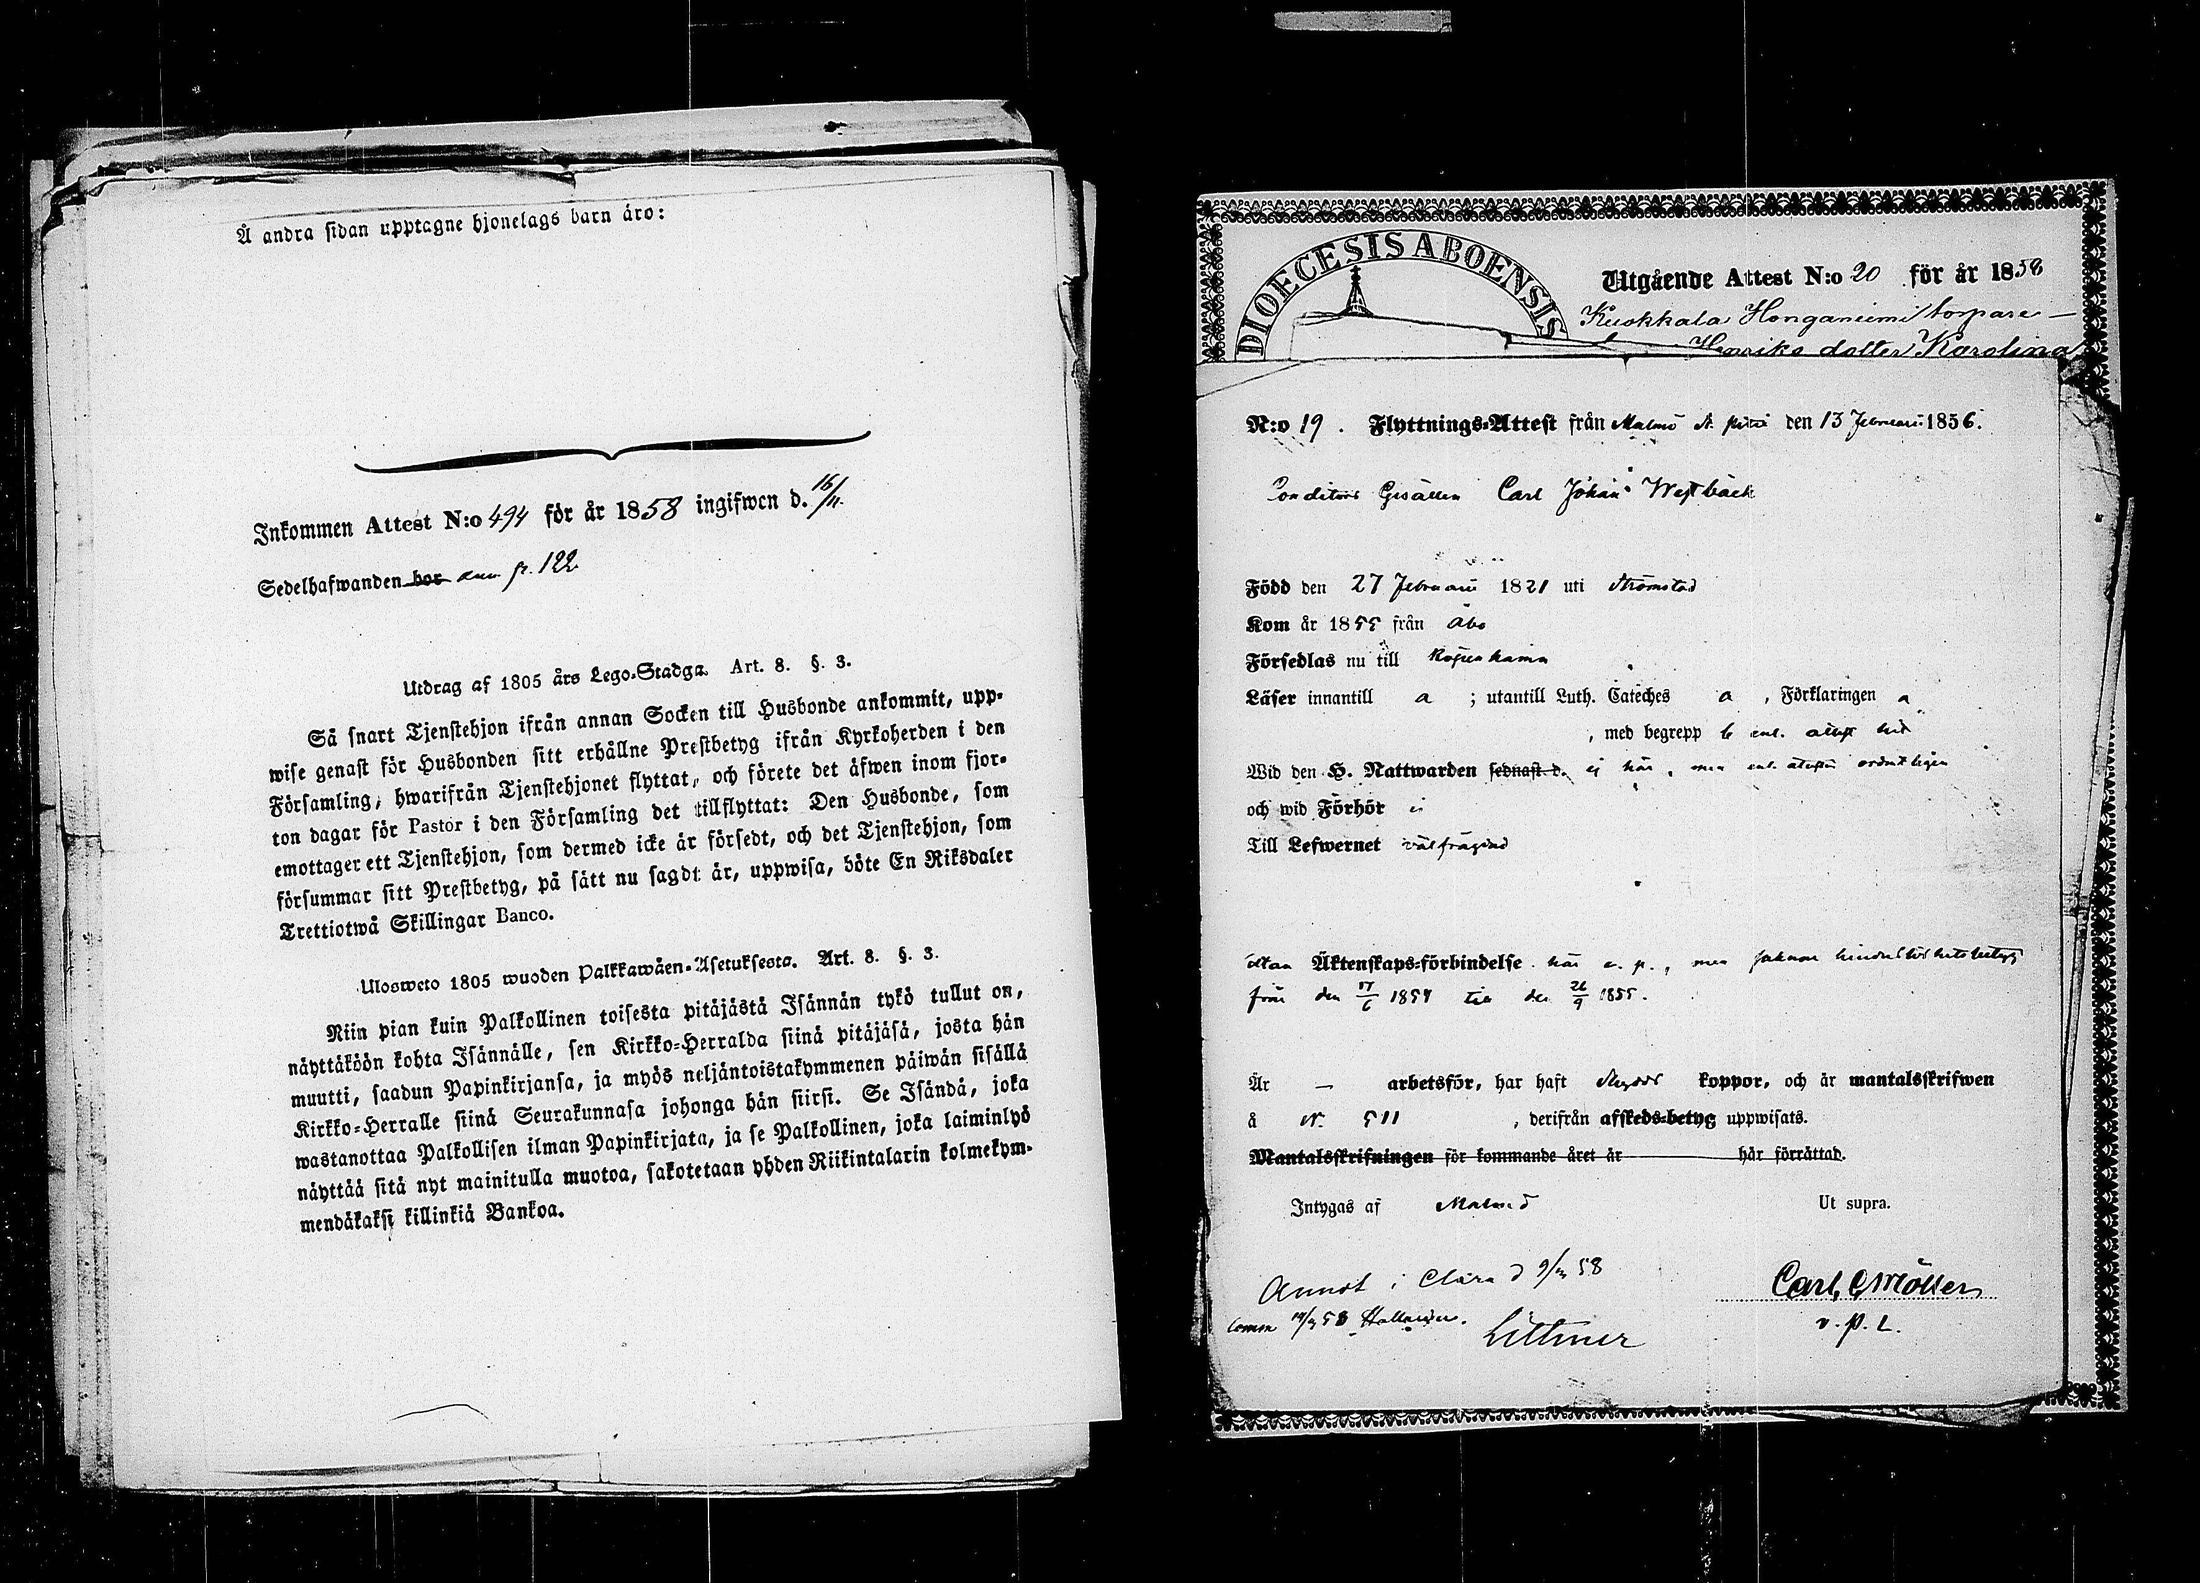 Å andra sidan upptagne hjonelags barn äro:
Inkommen Attest N:o 494 för år 1858 ingifwen d. 16/11.
Sedelhafwanden bor ann. p. 122
Utdrag af 1805 års Lego-Stadga. Art. 8. §. 3.
Så snart Tjenstehjon ifrån annan Socken till Husbonde ankommit, upp-
wise genast för Husbonden sitt erhållne Prestbetyg ifrån Kyrkoherden i den
Församling, hwarifrån Tjenstehjonet flyttat, och förete det äfwen inom fjor-
ton dagar för Pastor i den Församling det tillflyttat: Den Husbonde, som
emottager ett Tjenstehjon, som dermed icke är försedt, och det Tjenstehjon, som
försummar sitt Prestbetyg, på sätt nu sagdt är, uppwisa, böte En Riksdaler
Trettiotwå Skillingar Banco.
Ulosweto 1805 wuoden Palkkawäen-Asetuksesta. Art. 8. §. 3.
Niin pian kuin Palkollinen toisesta pitäjästä Isännän tykö tullut on,
näyttäköön kohta Isännälle, sen Kirkko-Herralda siinä pitäjäsä, josta hän
muutti, saadun Papinkirjansa, ja myös neljäntoistakymmenen päiwän sisällä
Kirkko-Herralle siinä Seurakunnasa johonga hän siirsi. Se Isändä, joka
wastanottaa Palkollisen ilman Papinkirjata, ja se Palkollinen, joka laiminlyö
näyttää sitä nyt mainitulla muotoa, sakotetaan yhden Riikintalarin kolmekym-
mendäkaksi killinkiä Bankoa.
DIOECESIS ABOENSIS
Utgående Attest N:o 20 för år 1858
Kuokkala Honganiemi torpare
Henriks dotter Karolina
N:o 19. Flyttnings-Attest från Malmö St. Petri den 13 Februari 1856.
Conditors Gesällen Carl Johan Westbäck
Född den 27 Februari 1821 uti Strömstad
Kom år 1855 från Åbo
Försedlas nu till Köpenhamn
Läser innantill a ; utantill Luth. Cateches a , Förklaringen a
, med begrepp b enl. attest hit
Wid den H. Nattwarden sednast d. ej här, men enl. attesten ordentligen
och wid Förhör ej
Till Lefwernet välfrägdad
Utan Äktenskaps-förbindelse här a. p., men saknar hinderslöshetsbetyg
från den 17/6 1854 till den 26/9 1855.
Är — arbetsför, har haft skydds koppor, och är mantalsskrifwen
å N. 511 , derifrån afskeds-betyg uppwisats.
Mantalsskrifningen för kommande året är här förrättad.
Intygas af Malmö Ut supra.
Annot i Clara d 9/11 58
Carl C Möller
v. P. L.
Littmer